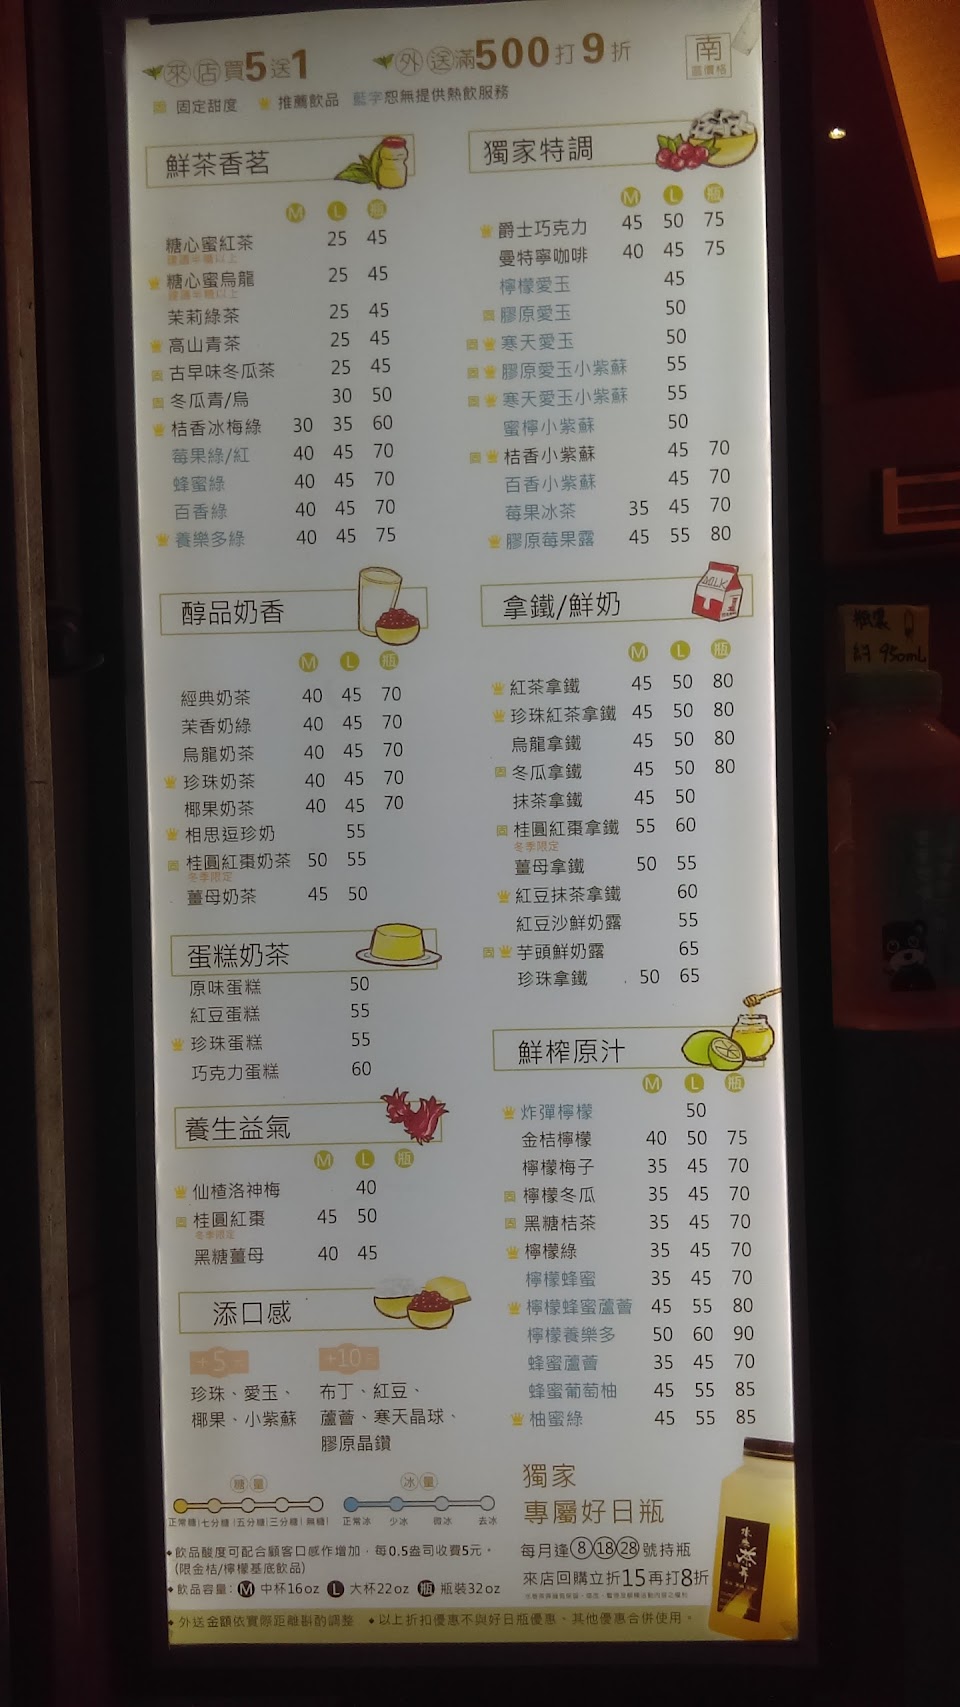 來店買5送1 外送滿500打9折 南區價格
固 固定甜度 推薦飲品 藍字恕無提供熱飲服務
鮮茶香茗
M L 瓶
糖心蜜紅茶 25 45
建議半糖以上
糖心蜜烏龍 25 45
建議半糖以上
茉莉綠茶 25 45
高山青茶 25 45
固 古早味冬瓜茶 25 45
固 冬瓜青/烏 30 50
桔香冰梅綠 30 35 60
莓果綠/紅 40 45 70
蜂蜜綠 40 45 70
百香綠 40 45 70
養樂多綠 40 45 75
醇品奶香
M L 瓶
經典奶茶 40 45 70
茉香奶綠 40 45 70
烏龍奶茶 40 45 70
珍珠奶茶 40 45 70
椰果奶茶 40 45 70
相思逗珍奶 55
固 桂圓紅棗奶茶 50 55
冬季限定
薑母奶茶 45 50
蛋糕奶茶
原味蛋糕 50
紅豆蛋糕 55
珍珠蛋糕 55
巧克力蛋糕 60
養生益氣
M L 瓶
仙楂洛神梅 40
固 桂圓紅棗 45 50
冬季限定
黑糖薑母 40 45
添口感
+5元 +10元
珍珠、愛玉、 布丁、紅豆、
椰果、小紫蘇 蘆薈、寒天晶球、
膠原晶鑽
糖量 冰量
正常糖 七分糖 五分糖 三分糖 無糖 正常冰 少冰 微冰 去冰
飲品酸度可配合顧客口感作增加，每0.5盎司收費5元。
(限金桔/檸檬基底飲品)
飲品容量：M 中杯16oz L 大杯22oz 瓶 瓶裝32oz
獨家特調
M L 瓶
爵士巧克力 45 50 75
曼特寧咖啡 40 45 75
檸檬愛玉 45
固 膠原愛玉 50
固 寒天愛玉 50
固 膠原愛玉小紫蘇 55
固 寒天愛玉小紫蘇 55
蜜檸小紫蘇 50
固 桔香小紫蘇 45 70
百香小紫蘇 45 70
莓果冰茶 35 45 70
膠原莓果露 45 55 80
拿鐵/鮮奶
MILK
M L 瓶
紅茶拿鐵 45 50 80
珍珠紅茶拿鐵 45 50 80
烏龍拿鐵 45 50 80
固 冬瓜拿鐵 45 50 80
抹茶拿鐵 45 50
固 桂圓紅棗拿鐵 55 60
冬季限定
薑母拿鐵 50 55
紅豆抹茶拿鐵 60
紅豆沙鮮奶露 55
固 芋頭鮮奶露 65
珍珠拿鐵 50 65
鮮榨原汁
M L 瓶
炸彈檸檬 50
金桔檸檬 40 50 75
檸檬梅子 35 45 70
固 檸檬冬瓜 35 45 70
固 黑糖桔茶 35 45 70
檸檬綠 35 45 70
檸檬蜂蜜 35 45 70
檸檬蜂蜜蘆薈 45 55 80
檸檬養樂多 50 60 90
蜂蜜蘆薈 35 45 70
蜂蜜葡萄柚 45 55 85
柚蜜綠 45 55 85
獨家
專屬好日瓶
每月逢⑧⑱㉘號持瓶
來店回購立折15再打8折
外送金額依實際距離斟酌調整 以上折扣優惠不與好日瓶優惠、其他優惠合併使用。
瓶裝
約950mL